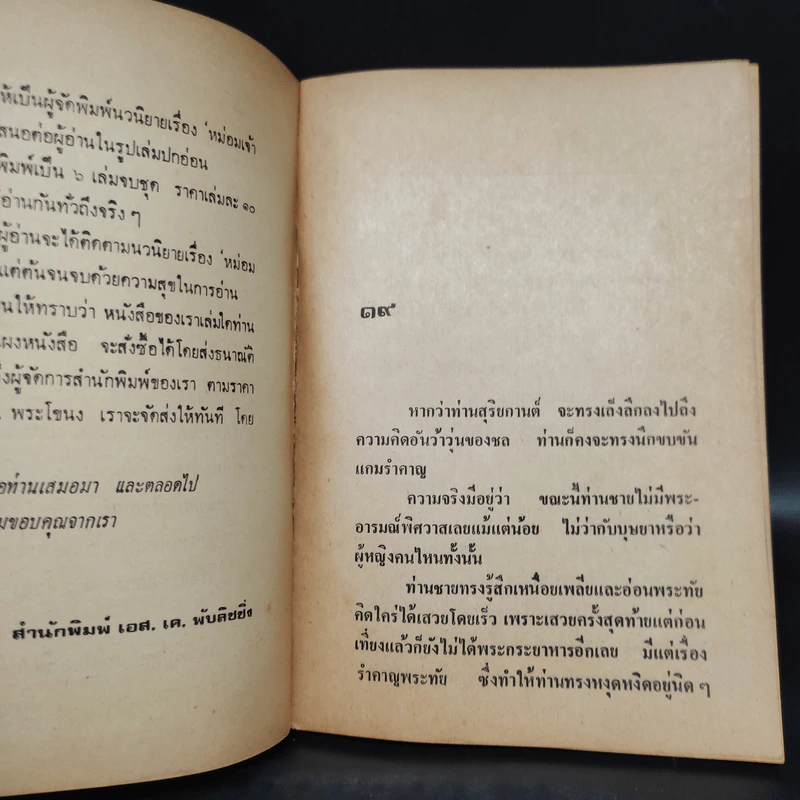 ให้เป็นผู้จัดพิมพ์นวนิยายเรื่อง 'หม่อมเจ้า
สนอต่อผู้อ่านในรูปเล่มปกอ่อน
พิมพ์เป็น ๖ เล่มจบชุด ราคาเล่มละ ๑๐
อ่านกันทั่วถึงจริง ๆ
ผู้อ่านจะได้ติดตามนวนิยายเรื่อง 'หม่อม
แต่ต้นจนจบด้วยความสุขในการอ่าน
นให้ทราบว่า หนังสือของเราเล่มใดท่าน
แผงหนังสือ จะสั่งซื้อได้โดยส่งธนาณัติ
ผู้จัดการสำนักพิมพ์ของเรา ตามราคา
พระโขนง เราจะจัดส่งให้ทันที โดย
อท่านเสมอมา และตลอดไป
มขอบคุณจากเรา
สำนักพิมพ์ เอส. เค. พับลิชชิ่ง
๑๙
หากว่าท่านสุริยกานต์ จะทรงเล็งลึกลงไปถึง
ความคิดอันว้าวุ่นของชล ท่านก็คงจะทรงนึกขบขัน
แกมรำคาญ
ความจริงมีอยู่ว่า ขณะนี้ท่านชายไม่มีพระ-
อารมณ์พิศวาสเลยแม้แต่น้อย ไม่ว่ากับบุษยาหรือว่า
ผู้หญิงคนไหนทั้งนั้น
ท่านชายทรงรู้สึกเหนื่อยเพลียและอ่อนพระทัย
คิดใคร่ได้เสวยโดยเร็ว เพราะเสวยครั้งสุดท้ายแต่ก่อน
เที่ยงแล้วก็ยังไม่ได้พระกระยาหารอีกเลย มีแต่เรื่อง
รำคาญพระทัย ซึ่งทำให้ท่านทรงหงุดหงิดอยู่นิด ๆ